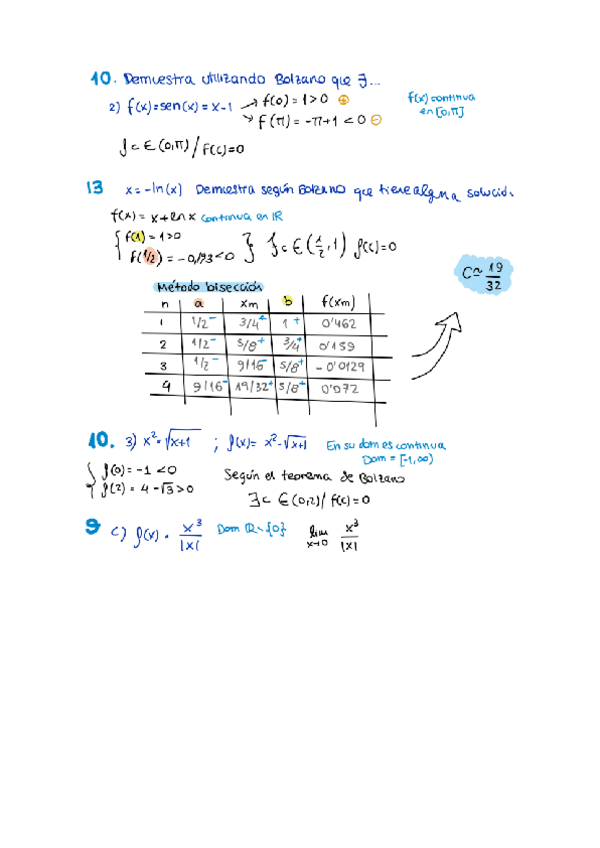 10. Demuestra utilizando Bolzano que ∃...
2) f(x)=sen(x)=x-1 → f(0)=1>0 ⊕ f(x) continua
→ f(π)=-π+1<0 ⊖ en [0,π]
∃c ∈ (0,π) / f(c)=0
13 x=-ln(x) Demuestra según Bolzano que tiene alguna solución.
f(x)=x+lnx continua en IR
{ f(1)=1>0
f(1/2)=-0,193<0 } ∃c ∈ (1/2,1) f(c)=0
C≃ 19/32
Método bisección
n a xm b f(xm)
1 1/2⁻ 3/4⁺ 1⁺ 0'462
2 1/2⁻ 5/8⁺ 3/4⁺ 0'159
3 1/2⁻ 9/16⁻ 5/8⁺ -0'0129
4 9/16⁻ 19/32⁺ 5/8⁺ 0'072
10. 3) x²=√x+1 ; f(x)= x²-√x+1 En su dom es continua
Dom = [-1,∞)
{ f(0)=-1<0
f(2)=4-√3>0 Según el teorema de Bolzano
∃c ∈ (0,2) / f(c)=0
9 c) f(x)= x³/|x| Dom IR-{0} lim x→0 x³/|x|